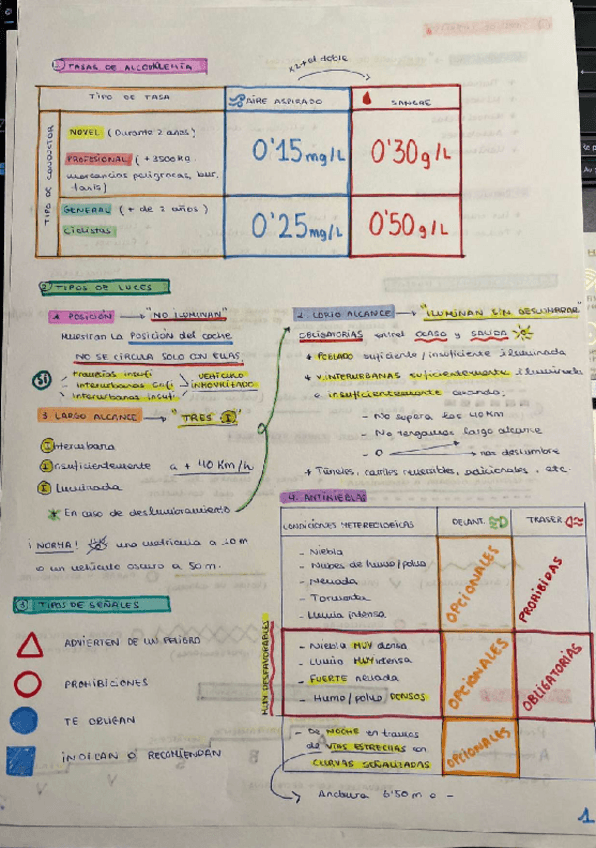 ① TASAS DE ALCOHOLEMIA
x2 + el doble
TIPO DE TASA
AIRE ASPIRADO
SANGRE
TIPO DE CONDUCTOR
NOVEL (Durante 2 años)
PROFESIONAL (+3500 Kg.
mercancías peligrosas, bus,
taxis)
0'15 mg/L
0'30 g/L
GENERAL (+ de 2 años)
Ciclistas
0'25 mg/L
0'50 g/L
② TIPOS DE LUCES
POSICIÓN → "NO ILUMINAN"
muestran la POSICIÓN del coche
NO SE CIRCULA SOLO CON ELLAS
SI
travesías insufi
interurbanas sufi
interurbanas insufi.
VEHÍCULO
INMOVILIZADO
3 LARGO ALCANCE → "TRES I"
Interurbana
Insuficientemente a + 40 Km/h
Iluminada
* En caso de deslumbramiento
¡NORMA! una matrícula a 10 m
o un vehículo oscuro a 50 m.
2. CORTO ALCANCE → "ILUMINAN SIN DESLUMBRAR"
OBLIGATORIAS entre OCASO y SALIDA
* POBLADO suficiente / insuficiente iluminada
* V. INTERURBANAS suficientemente iluminada
e insuficientemente cuando;
- No supera los 40 Km
- No tengamos largo alcance
- O → nos deslumbre
* Túneles, carriles reversibles, adicionales, etc.
4. ANTINIEBLAS
CONDICIONES METEREOLOGICAS
DELANT.
TRASER.
- Niebla
- Nubes de humo/polvo
- Nevada
- Tormenta
- Lluvia intensa
OPCIONALES
PROHIBIDAS
MUY DESFAVORABLES
- Niebla MUY densa
- Lluvia MUY intensa
- FUERTE nevada
- Humo/polvo DENSOS
OPCIONALES
OBLIGATORIAS
- De NOCHE en tramos
de VÍAS ESTRECHAS con
CURVAS SEÑALIZADAS
OPCIONALES
Anchura 6'50 m o -
③ TIPOS DE SEÑALES
ADVIERTEN DE UN PELIGRO
PROHIBICIONES
TE OBLIGAN
INDICAN O RECOMIENDAN
1